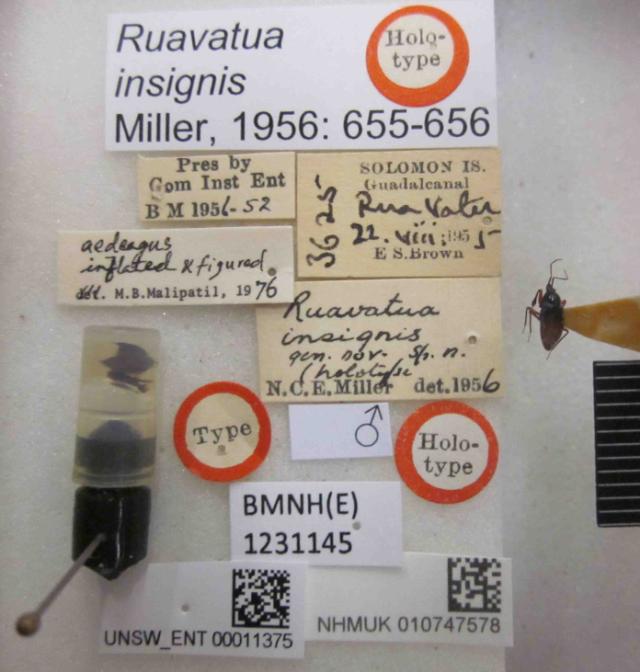 Ruavatua
insignis
Miller, 1956: 655-656
Holo-
type
Pres by
Com Inst Ent
B M 1956-52
SOLOMON IS.
Guadalcanal
Rua Vatu
22. viii. 1955
E S. Brown
3625
aedeagus
inflated & figured.
det. M.B.Malipatil, 1976
Ruavatua
insignis
gen. nov. sp. n.
(holotype
N.C.E. Miller det. 1956
Type
♂
Holo-
type
BMNH(E)
1231145
UNSW_ENT 00011375
NHMUK 010747578